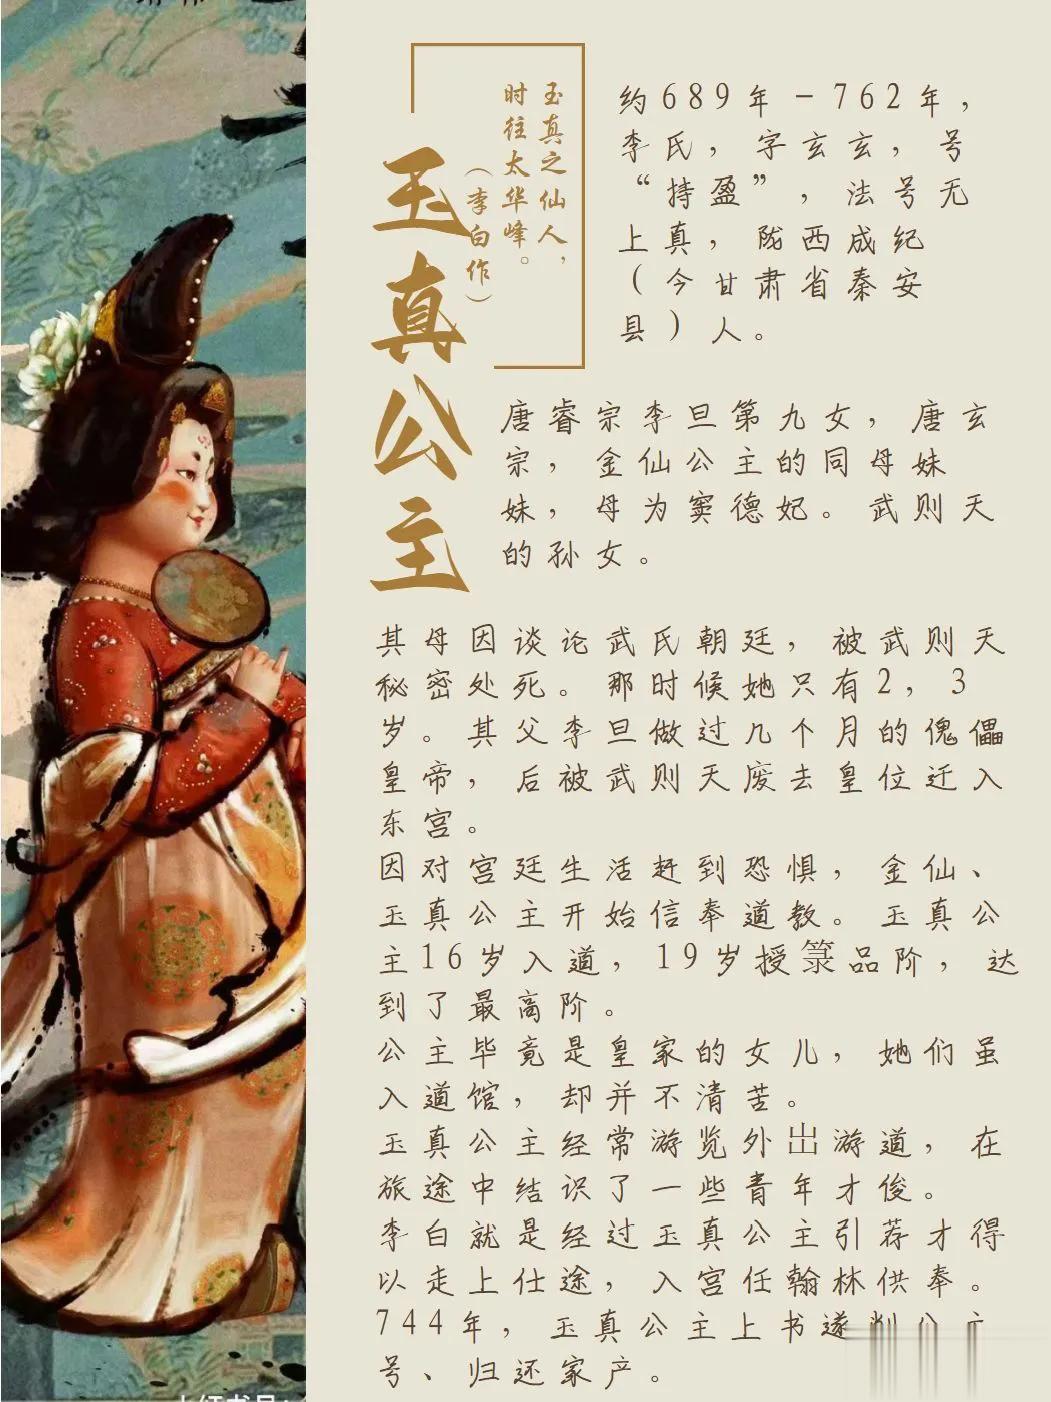 玉真之仙人，
时往太华峰。
（李白作）
玉真公主
约689年－762年，
李氏，字玄玄，号
“持盈”，法号无
上真，陇西成纪
（今甘肃省秦安
县）人。
唐睿宗李旦第九女，唐玄
宗，金仙公主的同母妹
妹，母为窦德妃。武则天
的孙女。
其母因谈论武氏朝廷，被武则天
秘密处死。那时候她只有2，3
岁。其父李旦做过几个月的傀儡
皇帝，后被武则天废去皇位迁入
东宫。
因对宫廷生活赶到恐惧，金仙、
玉真公主开始信奉道教。玉真公
主16岁入道，19岁授箓品阶，达
到了最高阶。
公主毕竟是皇家的女儿，她们虽
入道馆，却并不清苦。
玉真公主经常游览外出游道，在
旅途中结识了一些青年才俊。
李白就是经过玉真公主引荐才得
以走上仕途，入宫任翰林供奉。
744年，玉真公主上书遂削公主
号、归还家产。